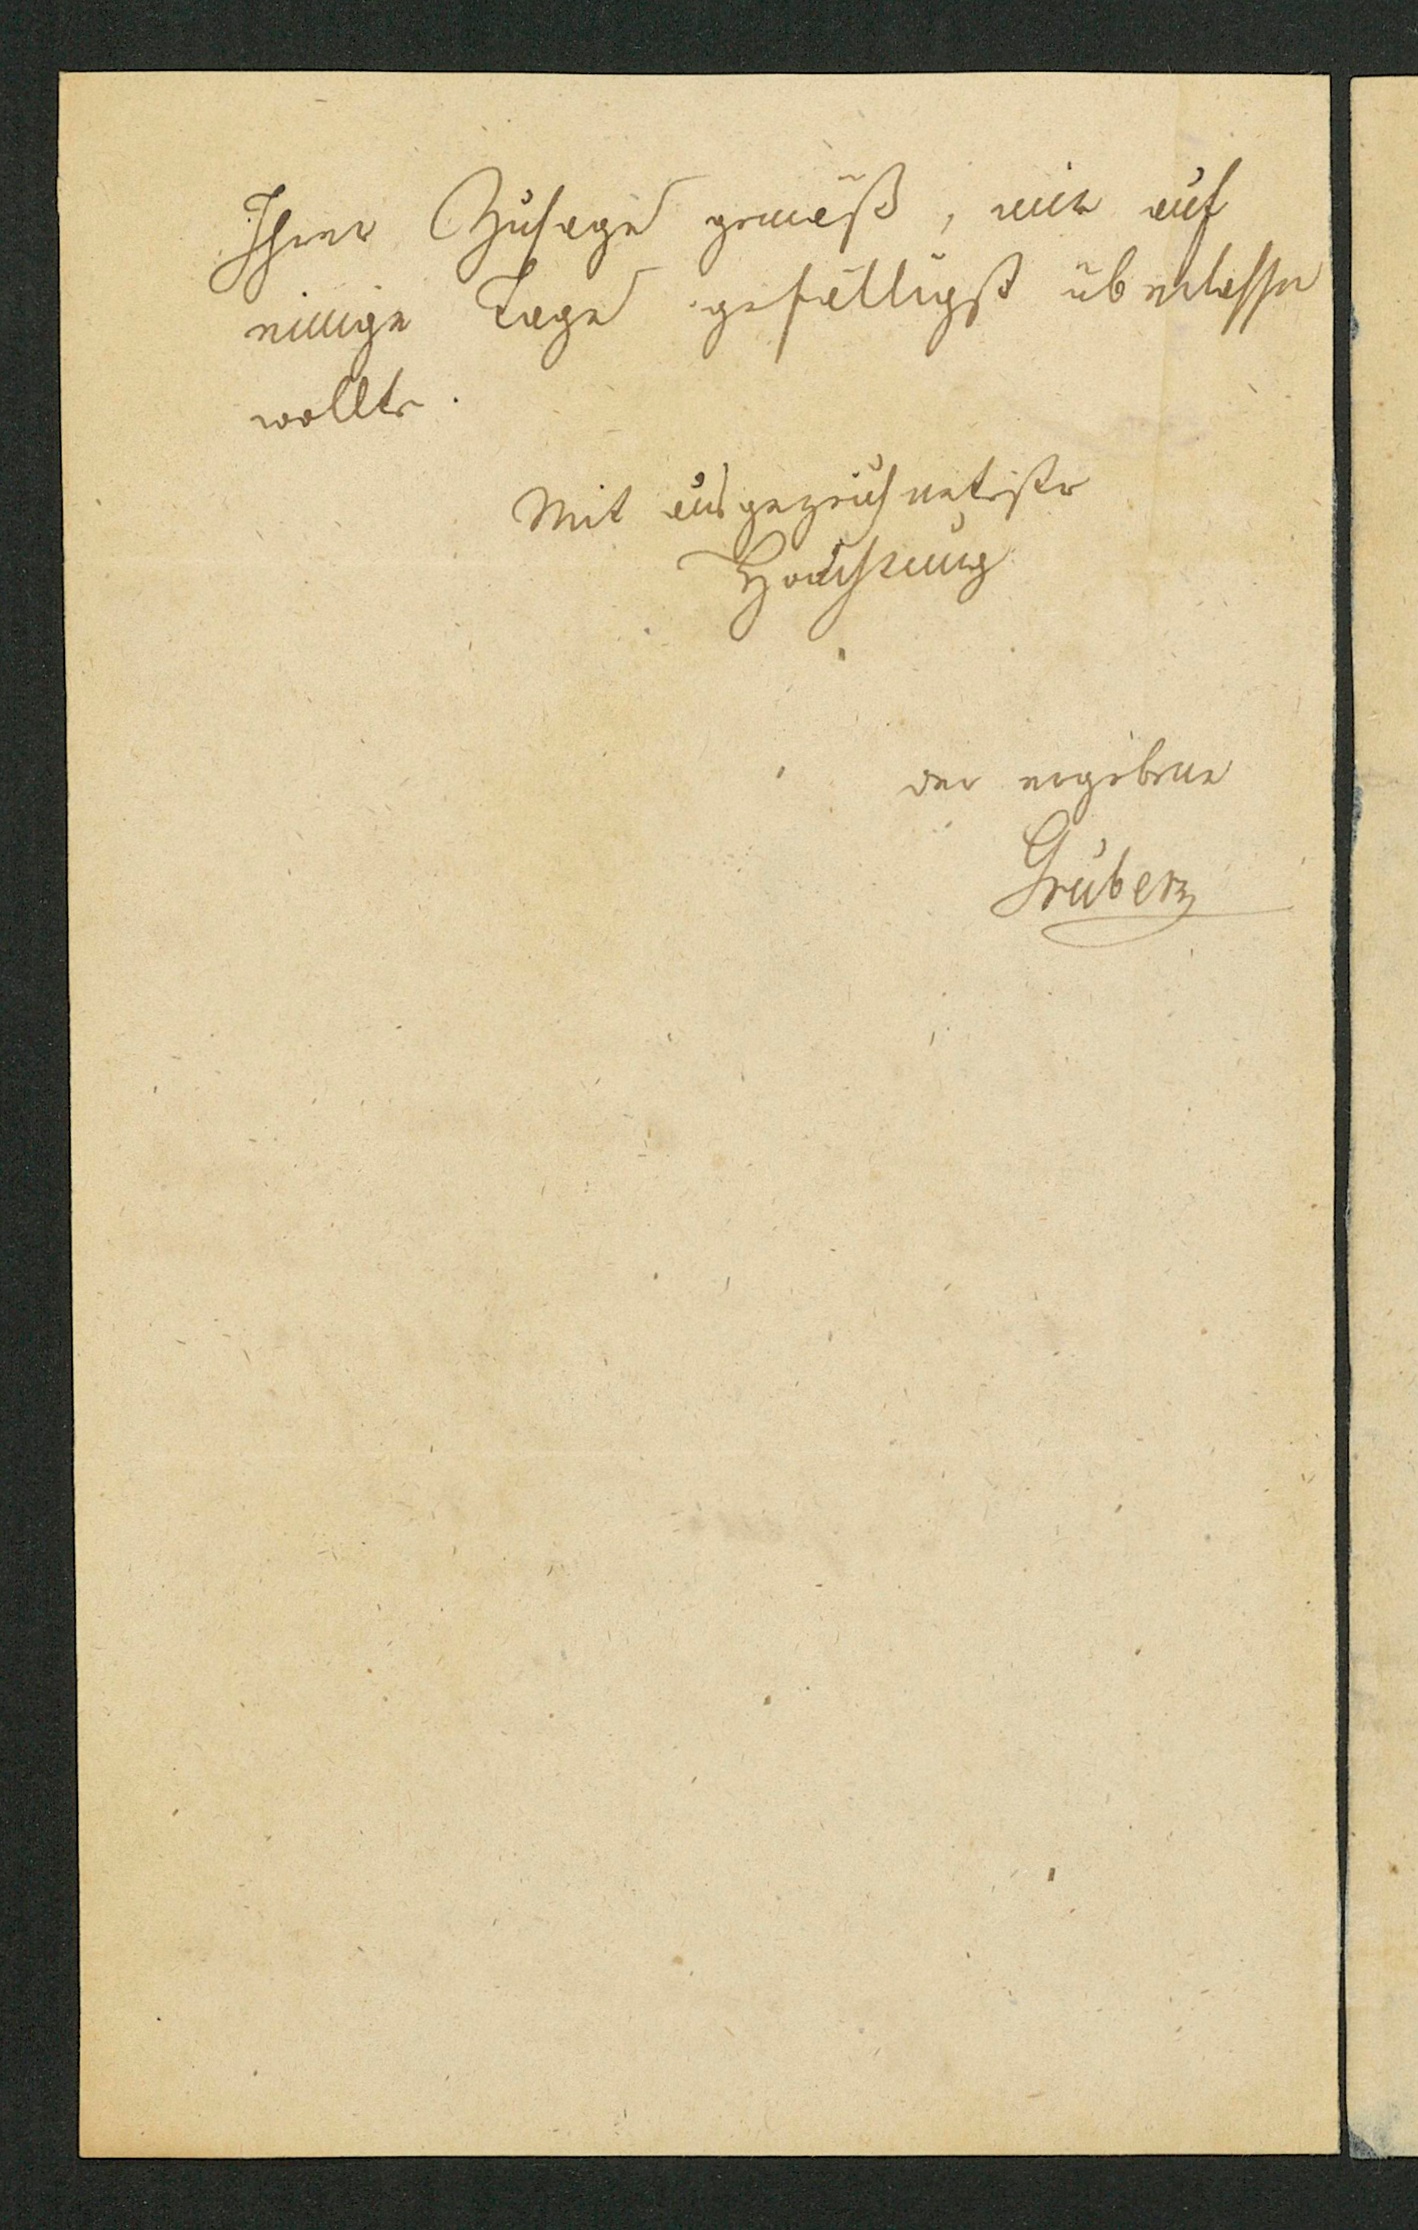 Ihrer Zusage gemäß, mir auf
einige Tage gefälligst überlassen
wollten.
Mit ausgezeichnetster
Hochachtung
der ergebene
Gruber